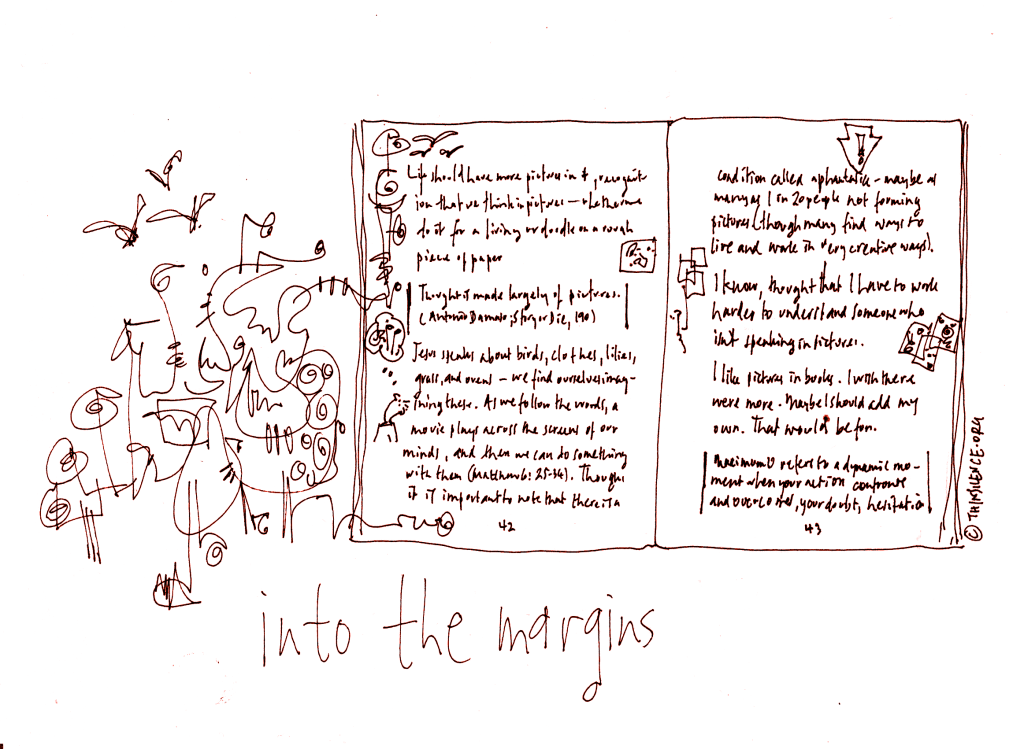 Life should have more pictures in it, recognit
ion that we think in pictures – whether we
do it for a living or doodle on a rough
piece of paper
Thought is made largely of pictures.
(Antonio Damasio; Story or Die, 190)
Jesus speaks about birds, clothes, lilies,
grass, and ovens – we find ourselves imag-
ining these. As we follow the words, a
movie plays across the screens of our
minds, and then we can do something
with them (Matthew 6: 25-34). Though
it is important to note that there is a
42
condition called aphantasia – maybe as
many as 1 in 20 people not forming
pictures (though many find ways to
live and work in very creative ways).
I know, thought that I have to work
harder to understand someone who
isn't speaking in pictures.
I like pictures in books. I wish there
were more. Maybe I should add my
own. That would be fun.
refers to a dynamic mo-
ment when your action confronts
and overcomes, your doubt, hesitation
43
© THISILENCE.ORG
into the margins